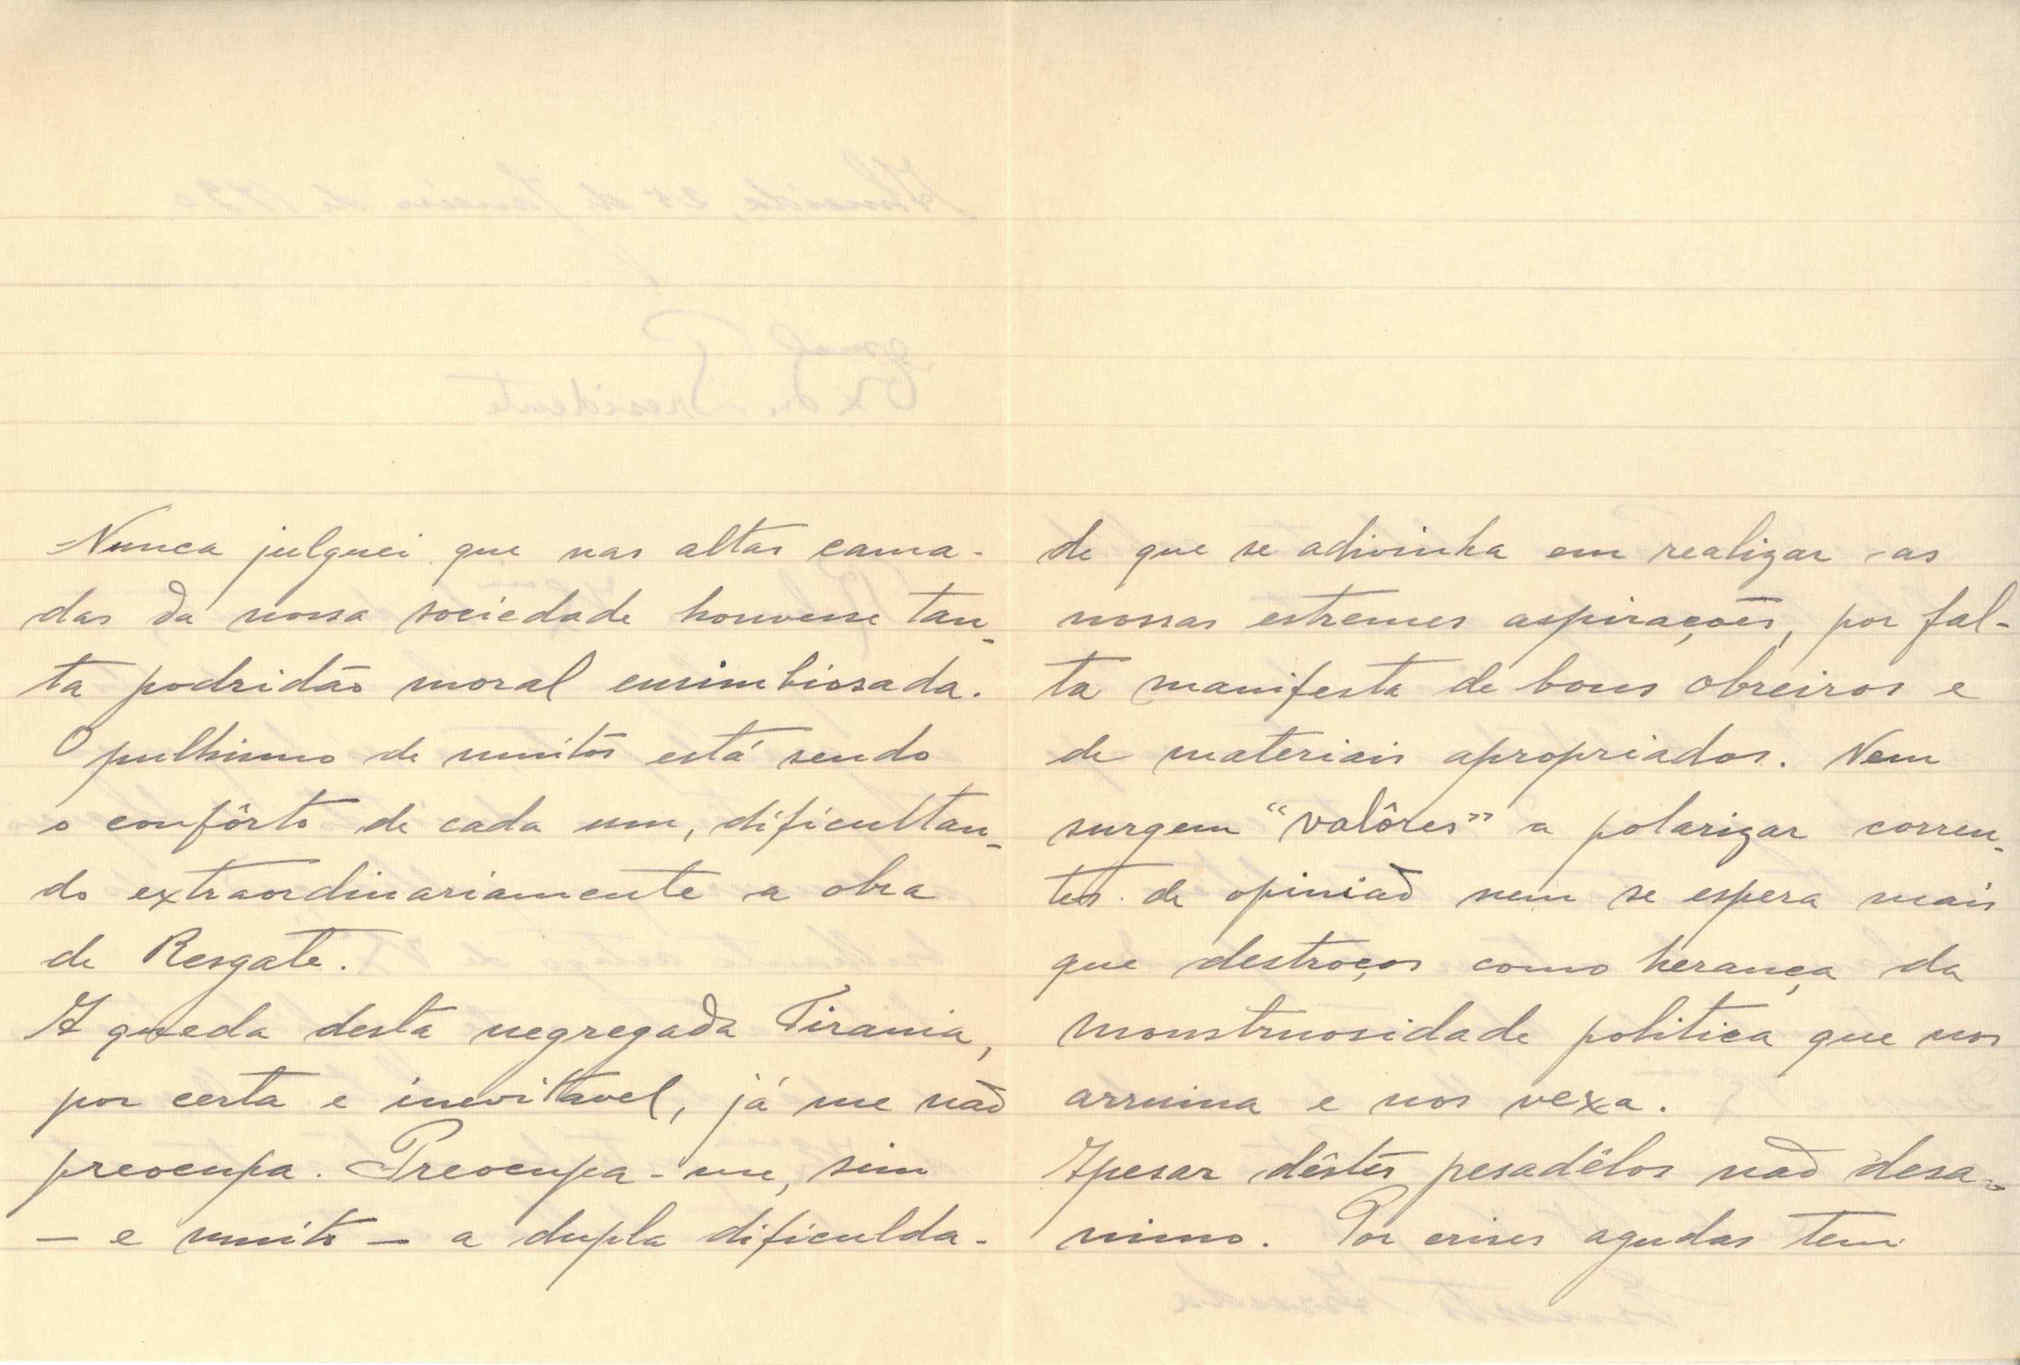 Nunca julguei que nas altas cama-
das da nossa sociedade houvesse tan-
ta podridão moral ensimbiosada.
O pulhismo de muitos está sendo
o confôrto de cada um, dificultan-
do extraordinariamente a obra
de Resgate.
A queda desta negregada Tirania,
por certa e inevitavel, já me não
preocupa. Preocupa-me, sim
— e muito — a dupla dificulda-
de que se adivinha em realizar as
nossas estremes aspirações, por fal-
ta manifesta de bons obreiros e
de materiais apropriados. Nem
surgem "valôres" a polarizar corren-
tes de opinião nem se espera mais
que destroços como herança da
monstruosidade politica que nos
arruina e nos vexa.
Apesar dêstes pesadêlos não desa-
nimo. Por crises agudas tem